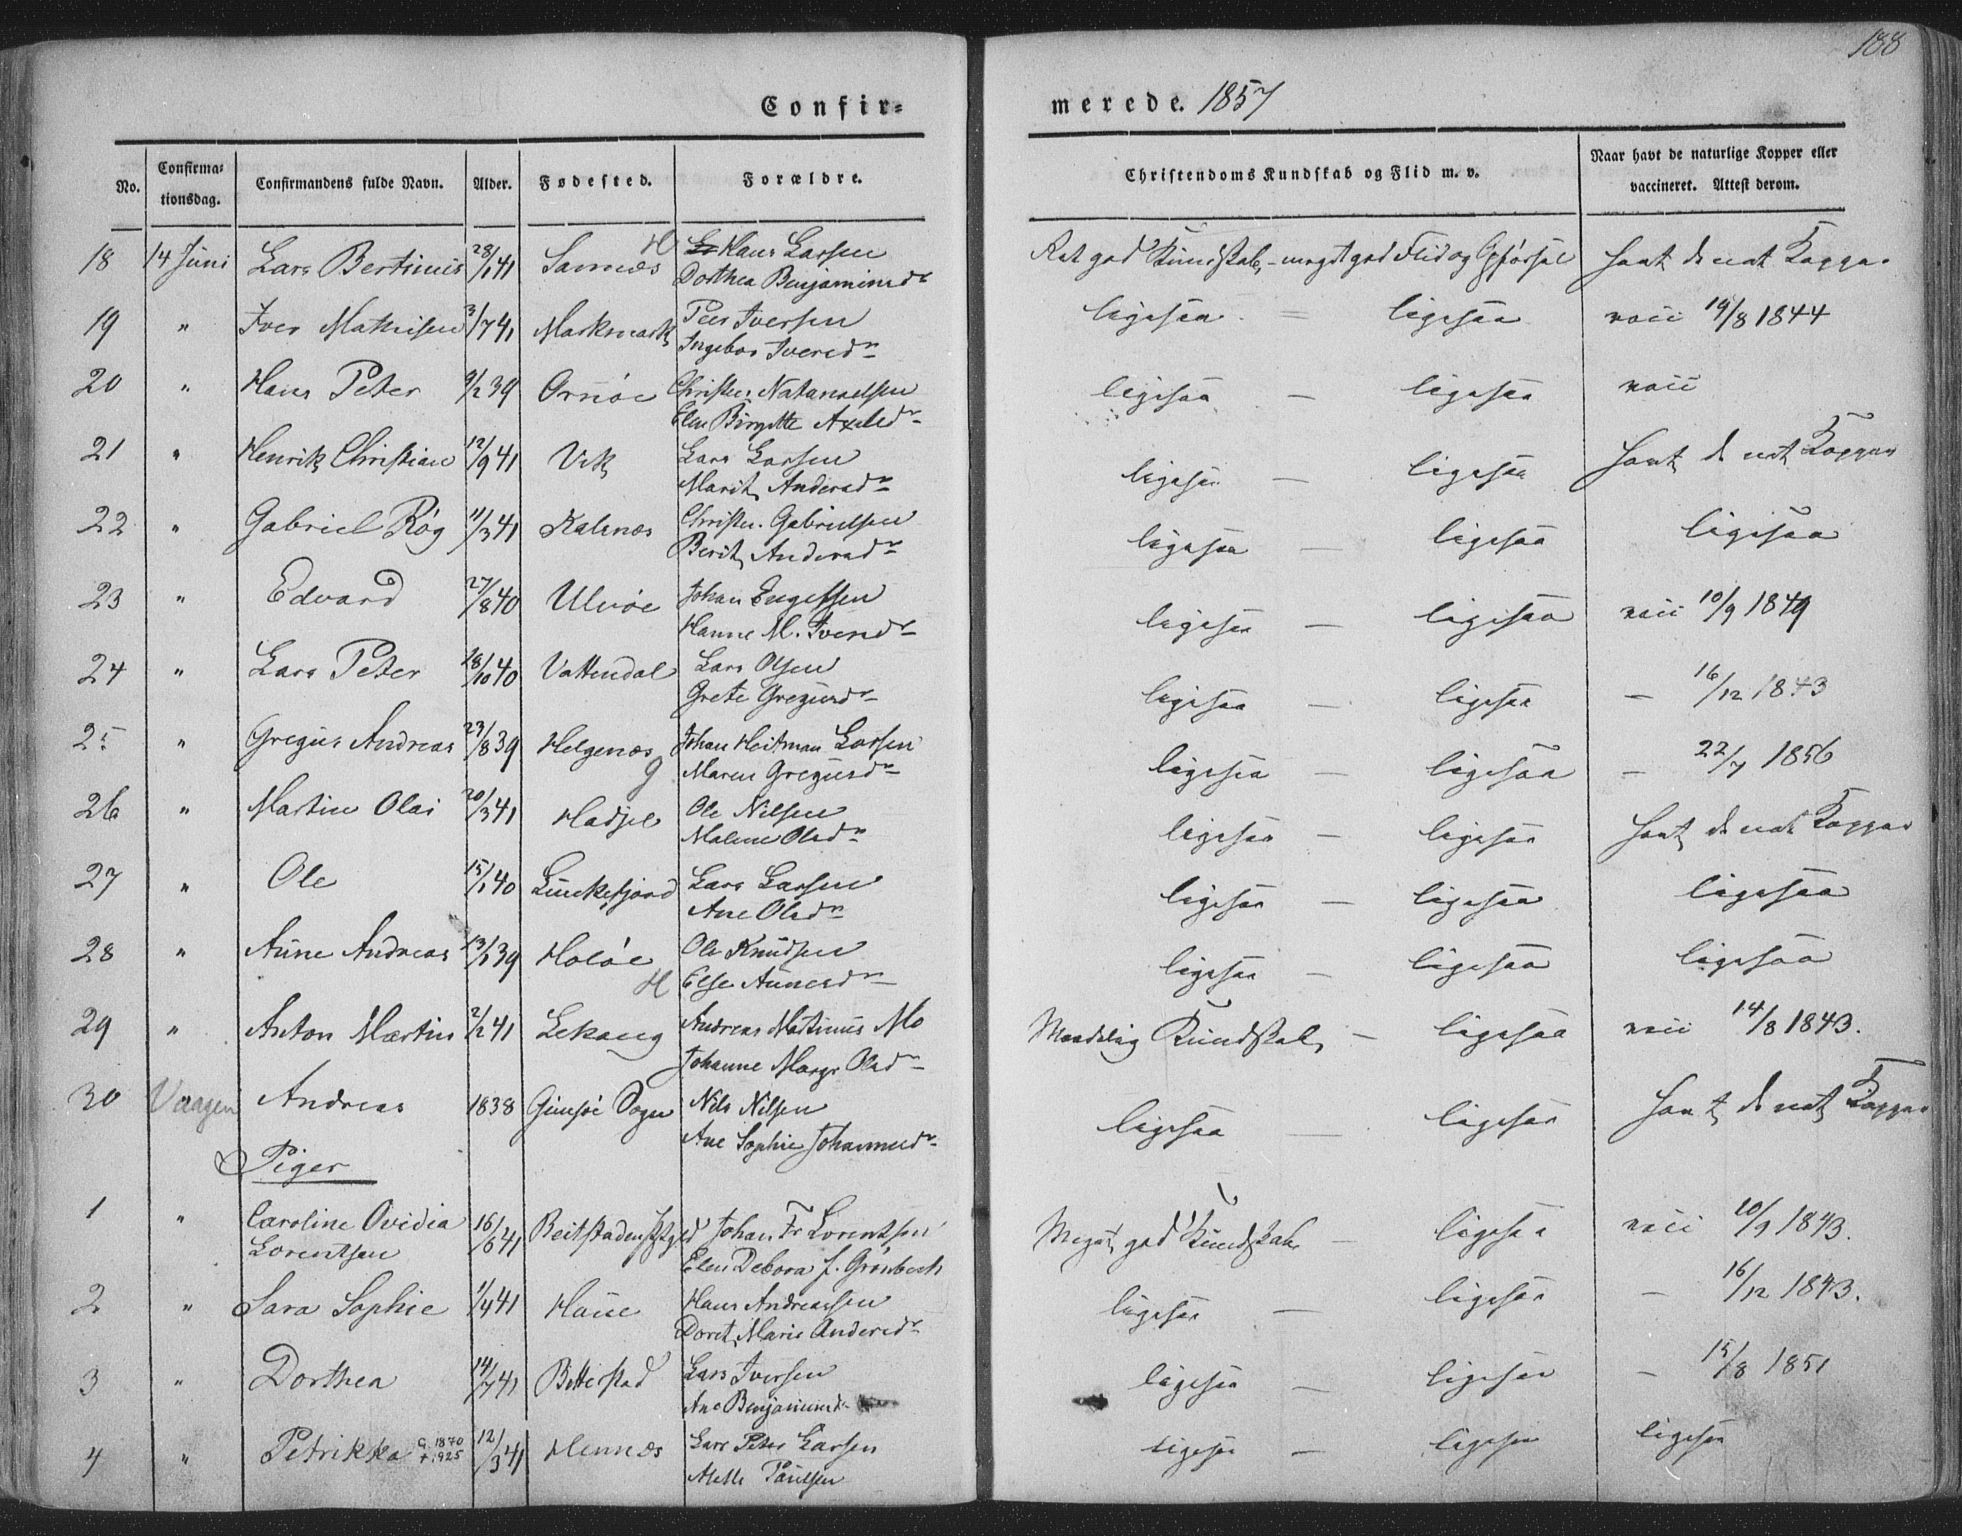 188
Confir=
merede. 1857
No.
Confirma=
tionsdag.
Confirmandens fulde Navn.
Alder.
Fødested.
Forældre.
Christendoms Kundskab og Flid m. v.
Naar havt de naturlige Kopper eller
vaccineret. Attest derom.
18 14 Juni Lars Bertinius 28/1 41 Sannæs H Hans Larsen
Dorthea Benjaminsdr
Ret god Kundskab – meget god Flid og Opførsel havt de nat Kopper
19 " Iver Mathisen 3/7 41 Markmark Peer Iversen
Ingebor Iversdr
ligesaa = ligesaa vacc 19/8 1844
20 " Hans Peter 9/2 39 Ornøe Christen Natanaelsen
Elen Birgitte Axelsdr
ligesaa – ligesaa vacc
21 " Henrik Christian 12/9 41 Vik Lars Larsen
Marit Andersdr
ligesaa – ligesaa havt de nat Kopper
22 " Gabriel Røg 11/3 41 Kalsnæs Christen Gabrielsen
Berit Andersdr
ligesaa – ligesaa ligesaa
23 " Edvard 27/8 40 Ulvøe Johan Engelsen
Hanne M. Iversdr
ligesaa – ligesaa vacc 10/9 1849
24 " Lars Peter 18/10 40 Vattendal Lars Olsen
Grete Gregusdr
ligesaa – ligesaa – 16/12 1843
25 " Gregus Andreas 23/8 39 Helgenæs Johan Heitman Larsen
g Maren Gregusdr
ligesaa – ligesaa – 22/7 1856
26 " Martin Olai 20/3 41 Hadsel Ole Nilsen
Malene Olsdr
ligesaa – ligesaa havt de nat Kopper
27 " Ole 15/1 40 Lunckefjord Lars Larsen
Ane Olsdr
ligesaa – ligesaa ligesaa
28 " Aune Andreas 13/1 39 Holøe Ole Knudsen
H Else Aunesdr
ligesaa – ligesaa ligesaa
29 " Anton Martin 2/2 41 Lekang Andreas Martinus Mo
Johanne Margr Olsdr
Maadelig Kundskab – ligesaa vacc 14/8 1843.
30 Vaagen Andreas 1838 Gimsøe Sogn Nils Nilsen
Ane Sophie Johannesdr
ligesaa – ligesaa havt de nat Kopper
Piger
1 " Caroline Ovidia 16/6 41 Beitstadens Pgld Johan Fr Lorentsen
Lorentsen Elen Debora f. Grønbech
Meget god Kundskab – ligesaa vacc 10/9 1843.
2 " Sara Sophie 1/4 41 Haue Hans Andreasen
Doret Marie Andersdr
ligesaa – ligesaa – 16/12 1843.
3 " Dorthea 14/7 41 Bitterstad Lars Iversen
Ane Benjaminsdr
ligesaa – ligesaa – 15/8 1851
4 " Petrikka G. 1870 12/3 41 Hennæs Lars Peter Larsen
+ 1925 Paulsen
ligesaa – ligesaa ligesaa